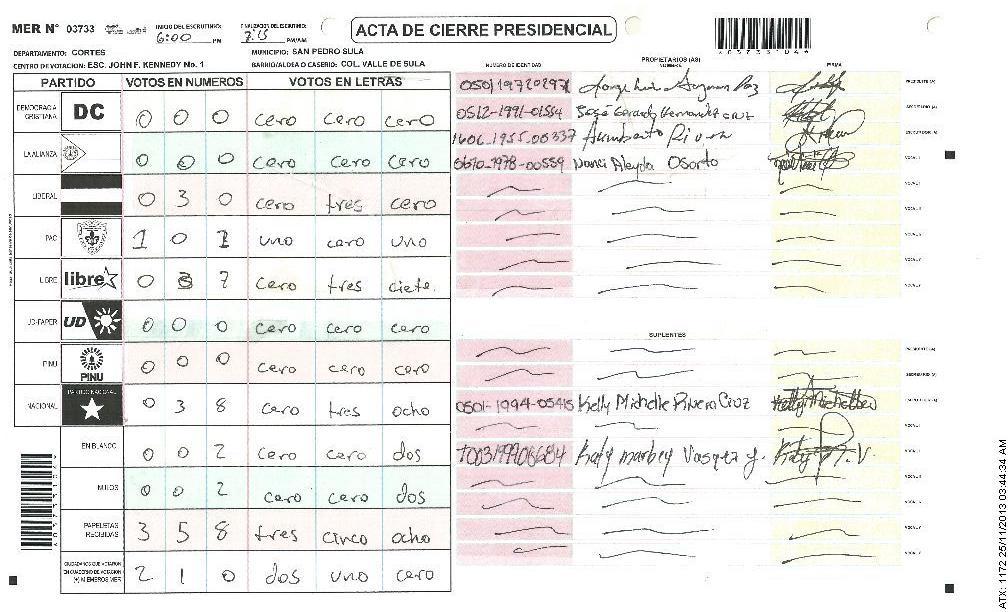 MER N° 03733 INICIO DEL ESCRUTINIO: 6:00 PM FINALIZACION DEL ESCRUTINIO: 7:15 PM/AM ACTA DE CIERRE PRESIDENCIAL
DEPARTAMENTO: CORTES MUNICIPIO: SAN PEDRO SULA
CENTRO DE VOTACION: ESC. JOHN F. KENNEDY No. 1 BARRIO/ALDEA O CASERIO: COL. VALLE DE SULA
PARTIDO VOTOS EN NUMEROS VOTOS EN LETRAS
DEMOCRACIA CRISTIANA DC 0 0 0 cero cero cero
LA ALIANZA 0 0 0 cero cero cero
LIBERAL 0 3 0 cero tres cero
PAC 1 0 1 uno cero uno
LIBRE libre 0 3 7 cero tres ciete.
UD-FAPER UD 0 0 0 cero cero cero
PINU PINU 0 0 0 cero cero cero
NACIONAL PARTIDO NACIONAL 0 3 8 cero tres ocho
EN BLANCO 0 0 2 cero cero dos
NULOS 0 0 2 cero cero dos
PAPELETAS RECIBIDAS 3 5 8 tres cinco ocho
CIUDADANOS QUE VOTARON EN CUADERNO DE VOTACION (+) MIEMBROS MER 2 1 0 dos uno cero
PROPIETARIOS (AS)
NUMERO DE IDENTIDAD NOMBRE FIRMA
Jorge Luis Guzman Paz PRESIDENTE (A)
0512-1991-01554 José Gerardo Hernandez Cruz SECRETARIO (A)
1606-1955-00337 Humberto Rivera ESCRUTADOR (A)
Nanci Aleyda Osorto VOCAL I
SUPLENTES
PRESIDENTE (A)
SECRETARIO (A)
0501-1994-05415 Kelly Michelle Rivera Cruz
Katy marbey Vasquez y.
ATX: 1172 25/11/2013 03:44:34 AM